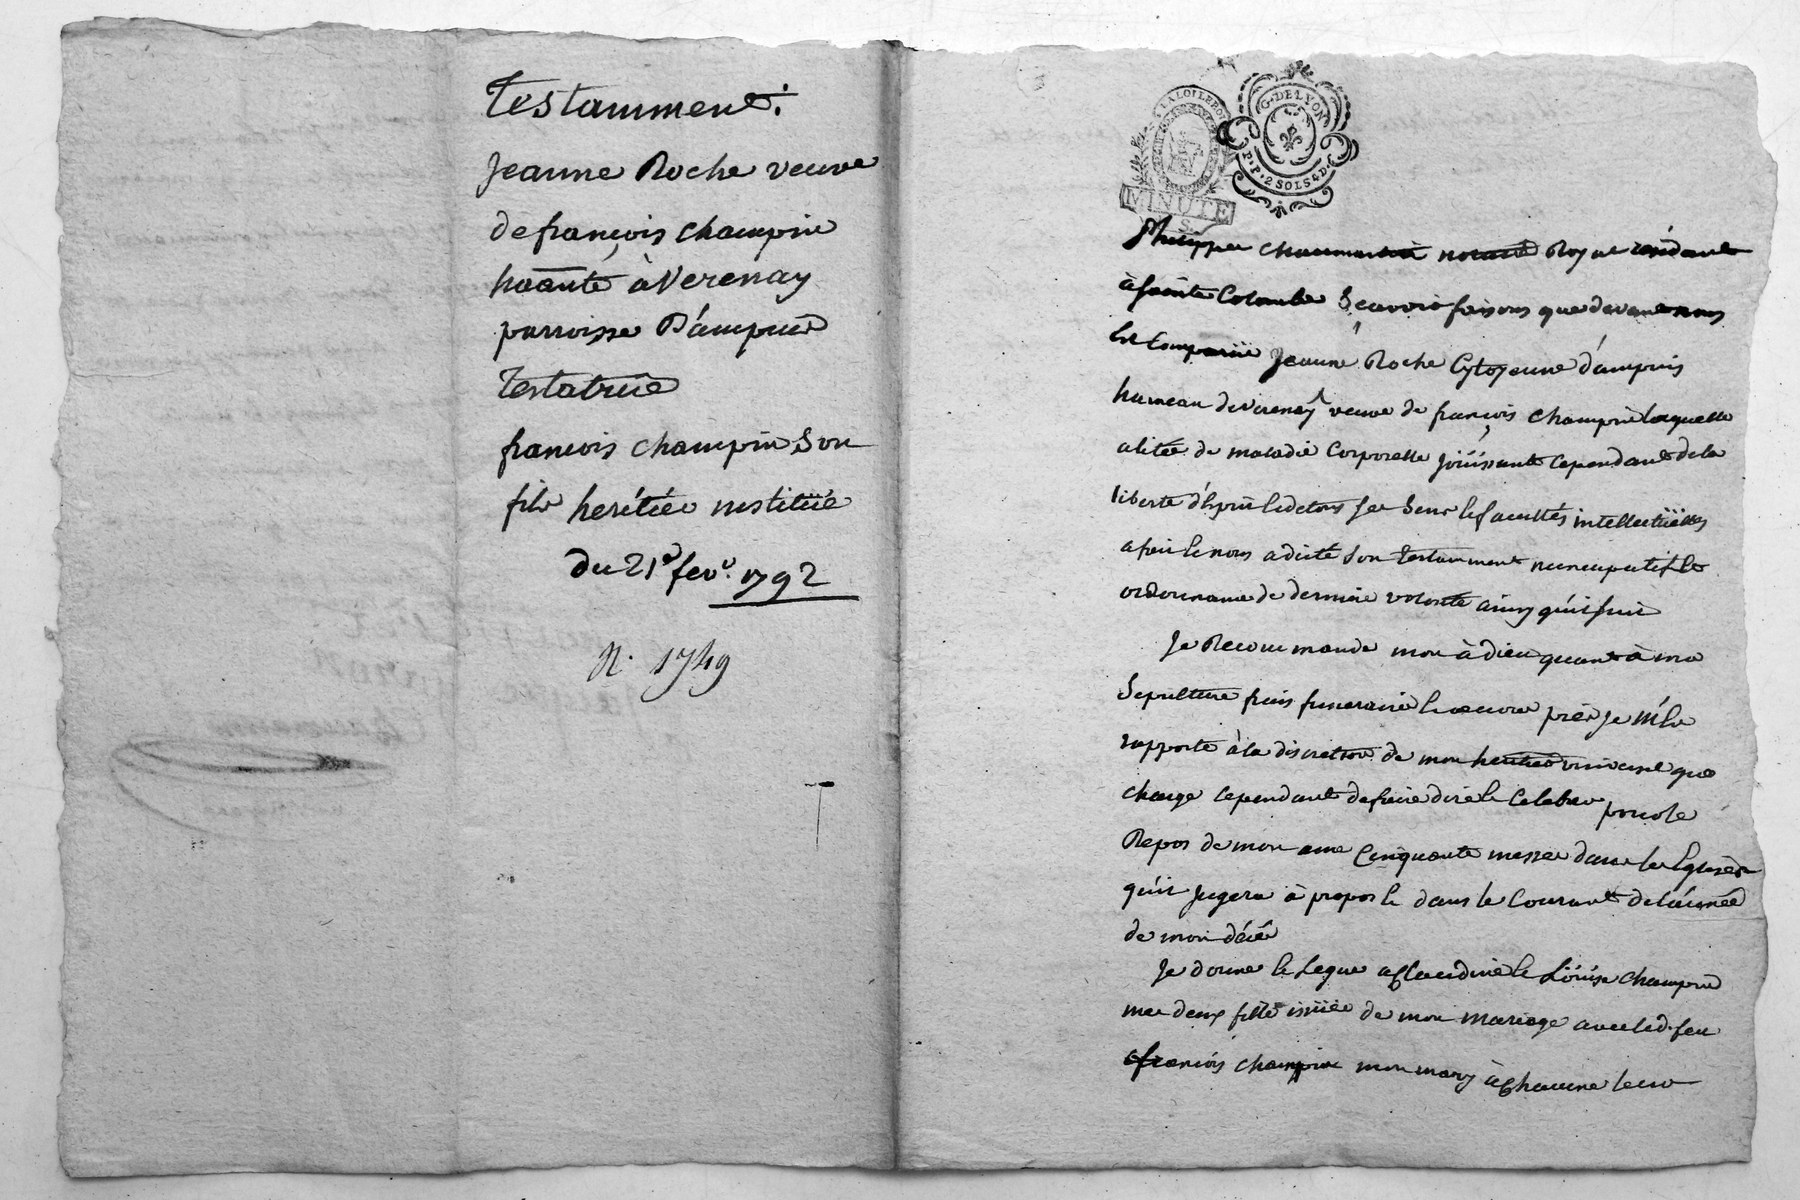 Testamment.
Jeanne Roche veuve
de françois champin
haānte à Verenay
parroisse D'ampuis
Testatrice
francois champin Son
fils heritier institüé
du 21e fevr. 1792
N. 1749
LA LOI LE ROI
G. DE LYON
P. P. 2 SOLS 4 D.
MINUTE
S
Philippe chaumartin notaire Royal résidant
à sainte Colombe Scavoir faisons que devant nous
est Comparüe Jeanne Roche Cytoyenne d'ampuis
hameau de Verenay veuve de françois champin laquelle
alitée de maladie Corporelle joüissant cependant de la
liberté d'esprit et de tous ses Sens et facultés intellectüelles
a fait et nous a dicté Son Testamment nuncupatif et
ordonnance de derniere volonté ainsy qu'il suit
Je Recommande mon à dieu quant à ma
Sepulture frais funeraire et œuvres pies je m'en
rapporte à la discretion de mon heritier universel que
charge cependant de faire dire et Celebrer pour le
Repos de mon ame Cinquante messes dans les Eglises
qu'il jugera à propos et dans le Courant de l'année
de mon décé
Je donne et Legue a Claudine et Loüise champin
mes deux filles issües de mon mariage avec led. feu
francois champin mon mary à Chacune leur